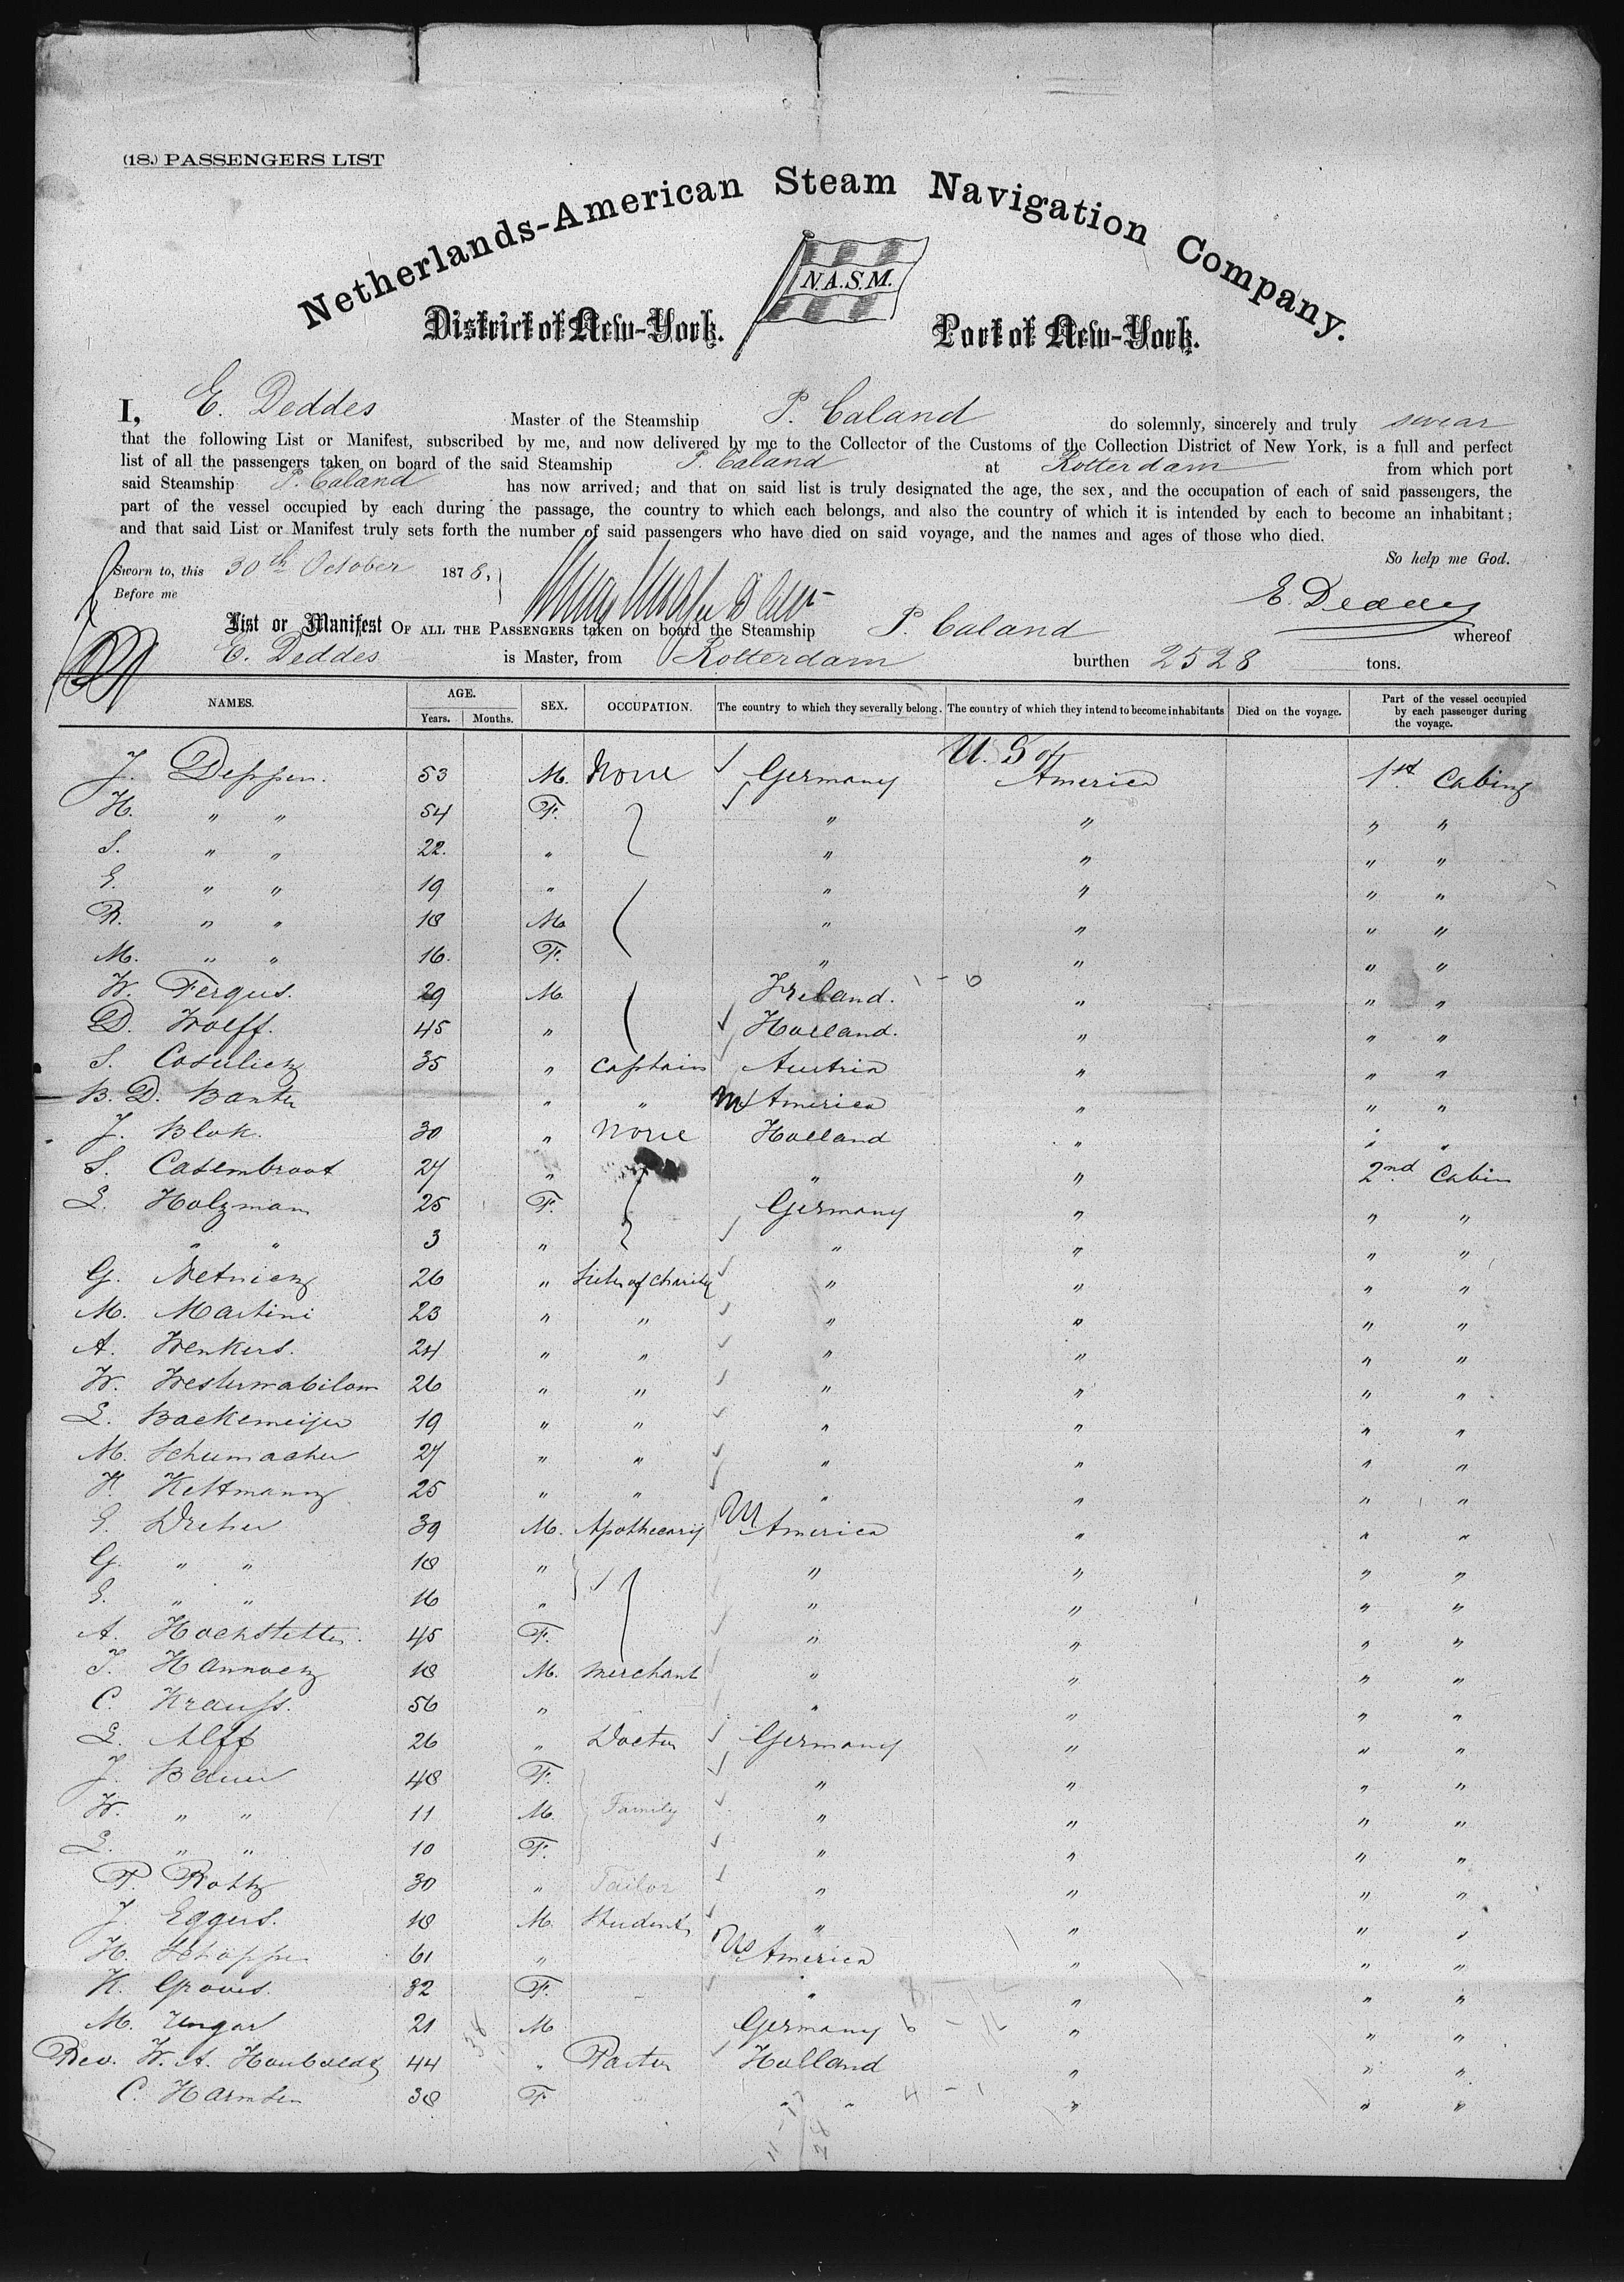 (18.) PASSENGERS LIST
Netherlands-American Steam Navigation Company.
N.A.S.M.
District of New-York. Port of New-York.
I, E. Deddes Master of the Steamship P. Caland do solemnly, sincerely and truly swear
that the following List or Manifest, subscribed by me, and now delivered by me to the Collector of the Customs of the Collection District of New York, is a full and perfect
list of all the passengers taken on board of the said Steamship P. Caland at Rotterdam from which port
said Steamship P. Caland has now arrived; and that on said list is truly designated the age, the sex, and the occupation of each of said passengers, the
part of the vessel occupied by each during the passage, the country to which each belongs, and also the country of which it is intended by each to become an inhabitant;
and that said List or Manifest truly sets forth the number of said passengers who have died on said voyage, and the names and ages of those who died.
So help me God.
Sworn to, this 30th October 1878,
Before me
E. Deddes
List or Manifest OF ALL THE PASSENGERS taken on board the Steamship P. Caland whereof
E. Deddes is Master, from Rotterdam burthen 2528 tons.
NAMES. AGE. Years. Months. SEX. OCCUPATION. The country to which they severally belong. The country of which they intend to become inhabitants Died on the voyage. Part of the vessel occupied by each passenger during the voyage.
J. Deppen. 53 M. None Germany U. S of America 1st Cabin
H. " " 54 F. " " " "
S. " " 22. " " " " "
E. " " 19 " " " " "
R. " " 18 M. " " " "
M. " " 16. F. " " " "
W. Fergus. 29 M. Ireland. " " "
D. Wolff. 45 " Holland. " " "
S. Cosulich 35 " Captain Austria " " "
B. D. Banter " " America " " "
J. Blok. 30 " None Holland " " "
S. Casembroot 27 " " " 2nd Cabin
L. Holzman 25 F. Germany " " "
" " 3 " " " " "
G. 26 " Sister of Charity " " " "
M. Martini 23 " " " " " "
A. Wenkers. 24 " " " " " "
W. 26 " " " " " "
L. Backemeijer 19 " " " " " "
M. Schumacher 27 " " " " " "
H. Kettmann 25 " " " " " "
E. Dreher 39 M. Apothecary America " " "
G. " " 18 " " " " "
E. " " 16 " " " " "
A. Hochstetter. 45 F. " " " "
J. 18 M. merchant " " " "
C. Krauss. 56 " " " " "
L. Alff 26 " Doctor Germany " " "
J. Bauer 48 F. " " " "
W. " " 11 M. Family " " " "
L. " " 10 F. " " " "
P. 30 " Tailor " " " "
J. Eggers. 18 M. Student " " " "
H. 61 " US America " " "
K. Groves. 32 F. " " " "
M. Ungar 21 M Germany " " "
Rev. W. A. 44 " Pastor Holland " " "
C. Harmsen 38 F. " " " " "